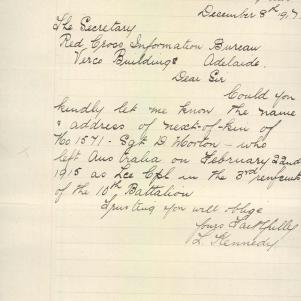 December 8th 191
The Secretary
Red Cross Information Bureau
Verco Buildings Adelaide
Dear Sir
Could you
kindly let me know the name
& address of next-of-kin of
No 1571 - Sgt D Morton - who
left Australia on February 22nd
1915 as Lce Cpl in the 3rd renfcmts
of the 10th Battalion
Trusting you will oblige
yours Faithfully
L. Kennedy